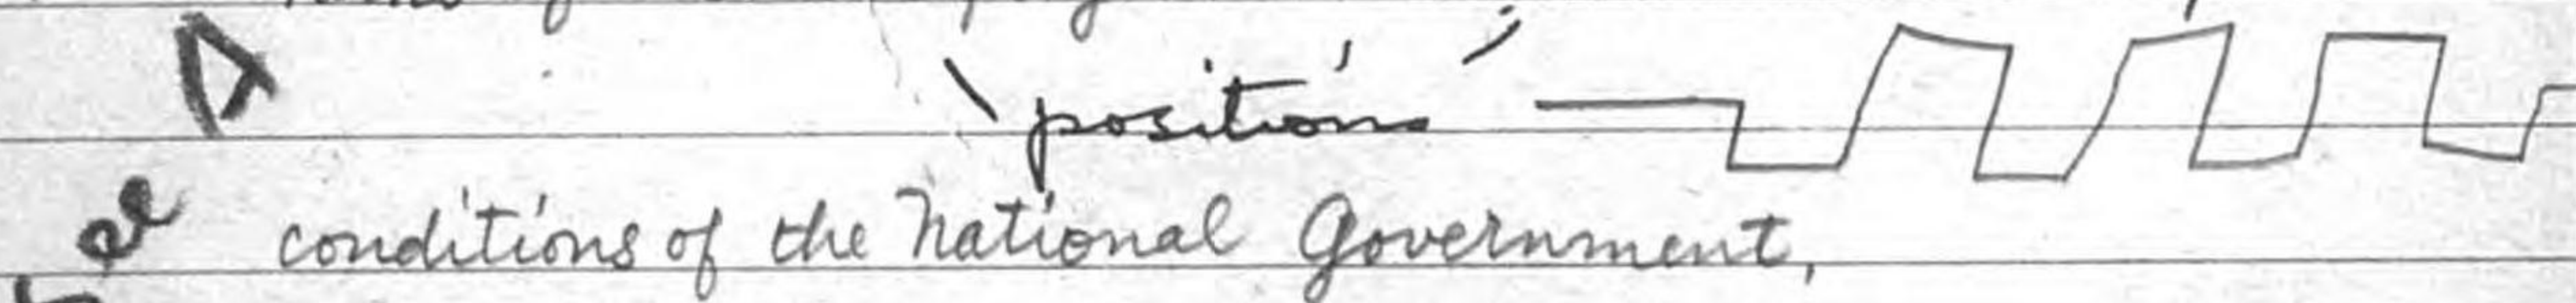 'positions'
conditions of the National Government,